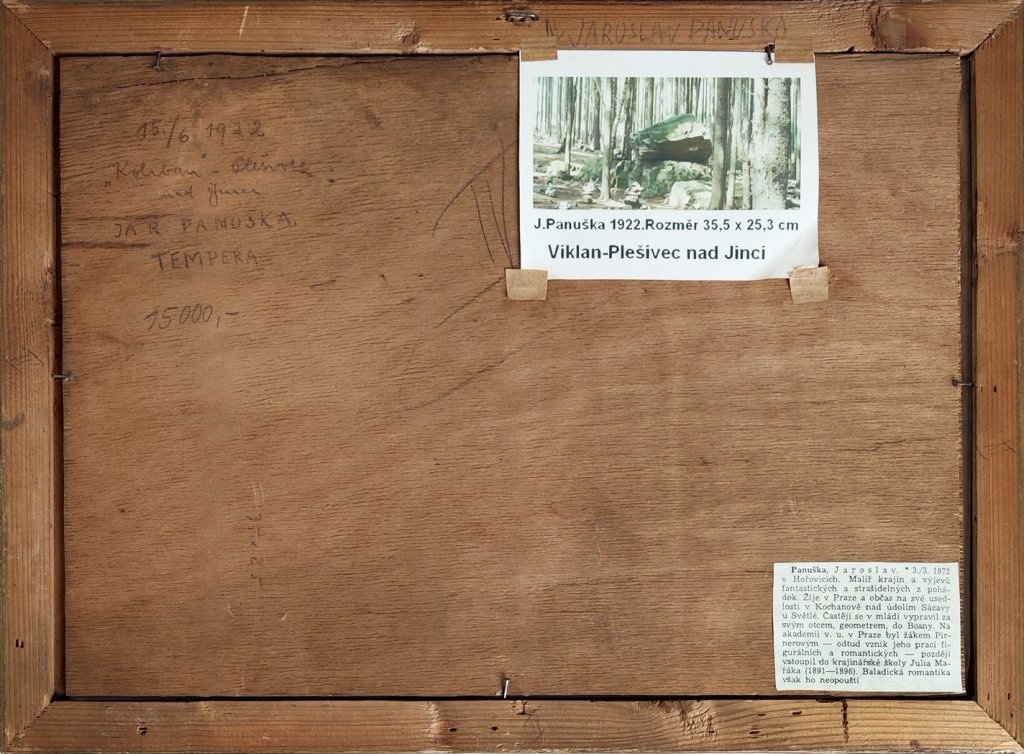 JAROSLAV PANUSKA
15./6 1922
"Koliba" - Plešivec
nad Jinci
JAR. PANUŠKA.
TEMPERA
15000,-
J.Panuška 1922.Rozměr 35,5 x 25,3 cm
Viklan-Plešivec nad Jinci
Panuška, Jaroslav. * 3./3. 1872
v Hořovicích. Malíř krajin a výjevů
fantastických a strašidelných z pohá-
dek. Žije v Praze a občas na své used-
losti v Kochanově nad údolím Sázavy
u Světlé. Častěji se v mládí vypravil za
svým otcem, geometrem, do Bosny. Na
akademii v. u. v Praze byl žákem Pir-
nerovým — odtud vznik jeho prací fi-
gurálních a romantických — později
vstoupil do krajinářské školy Julia Ma-
řáka (1891—1896). Baladická romantika
však ho neopouští